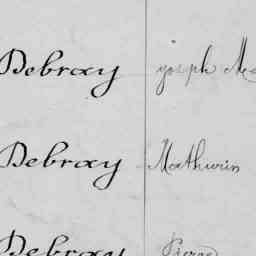 Debray Joseph
Debray Mathurin
Debray Pierre